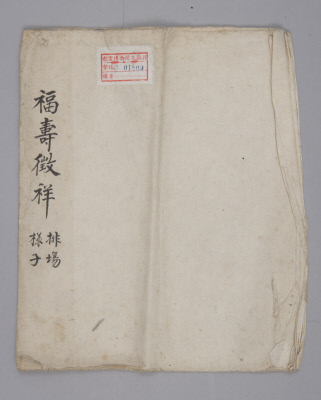 福壽徵祥
排場
樣子